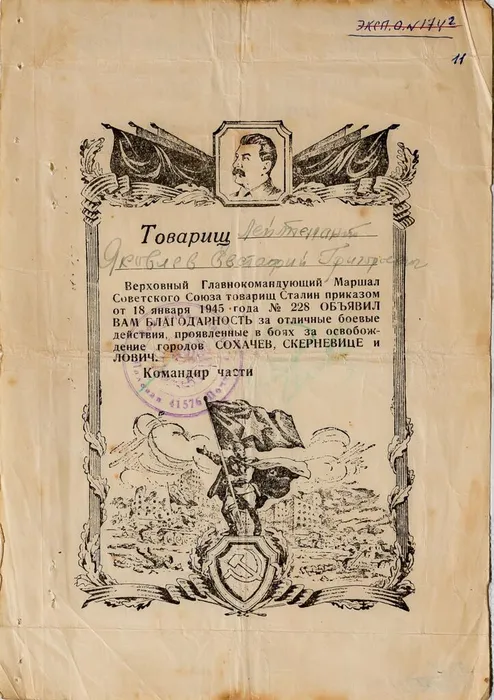 ЭКСП.О.№1742
11
Товарищ Лейтенант
Яковлев Евстафий Григорьевич
Верховный Главнокомандующий Маршал
Советского Союза товарищ Сталин приказом
от 18 января 1945 года № 228 ОБЪЯВИЛ
ВАМ БЛАГОДАРНОСТЬ за отличные боевые
действия, проявленные в боях за освобож-
дение городов СОХАЧЕВ, СКЕРНЕВИЦЕ и
ЛОВИЧ.
Командир части
Полевая 41576 Почта